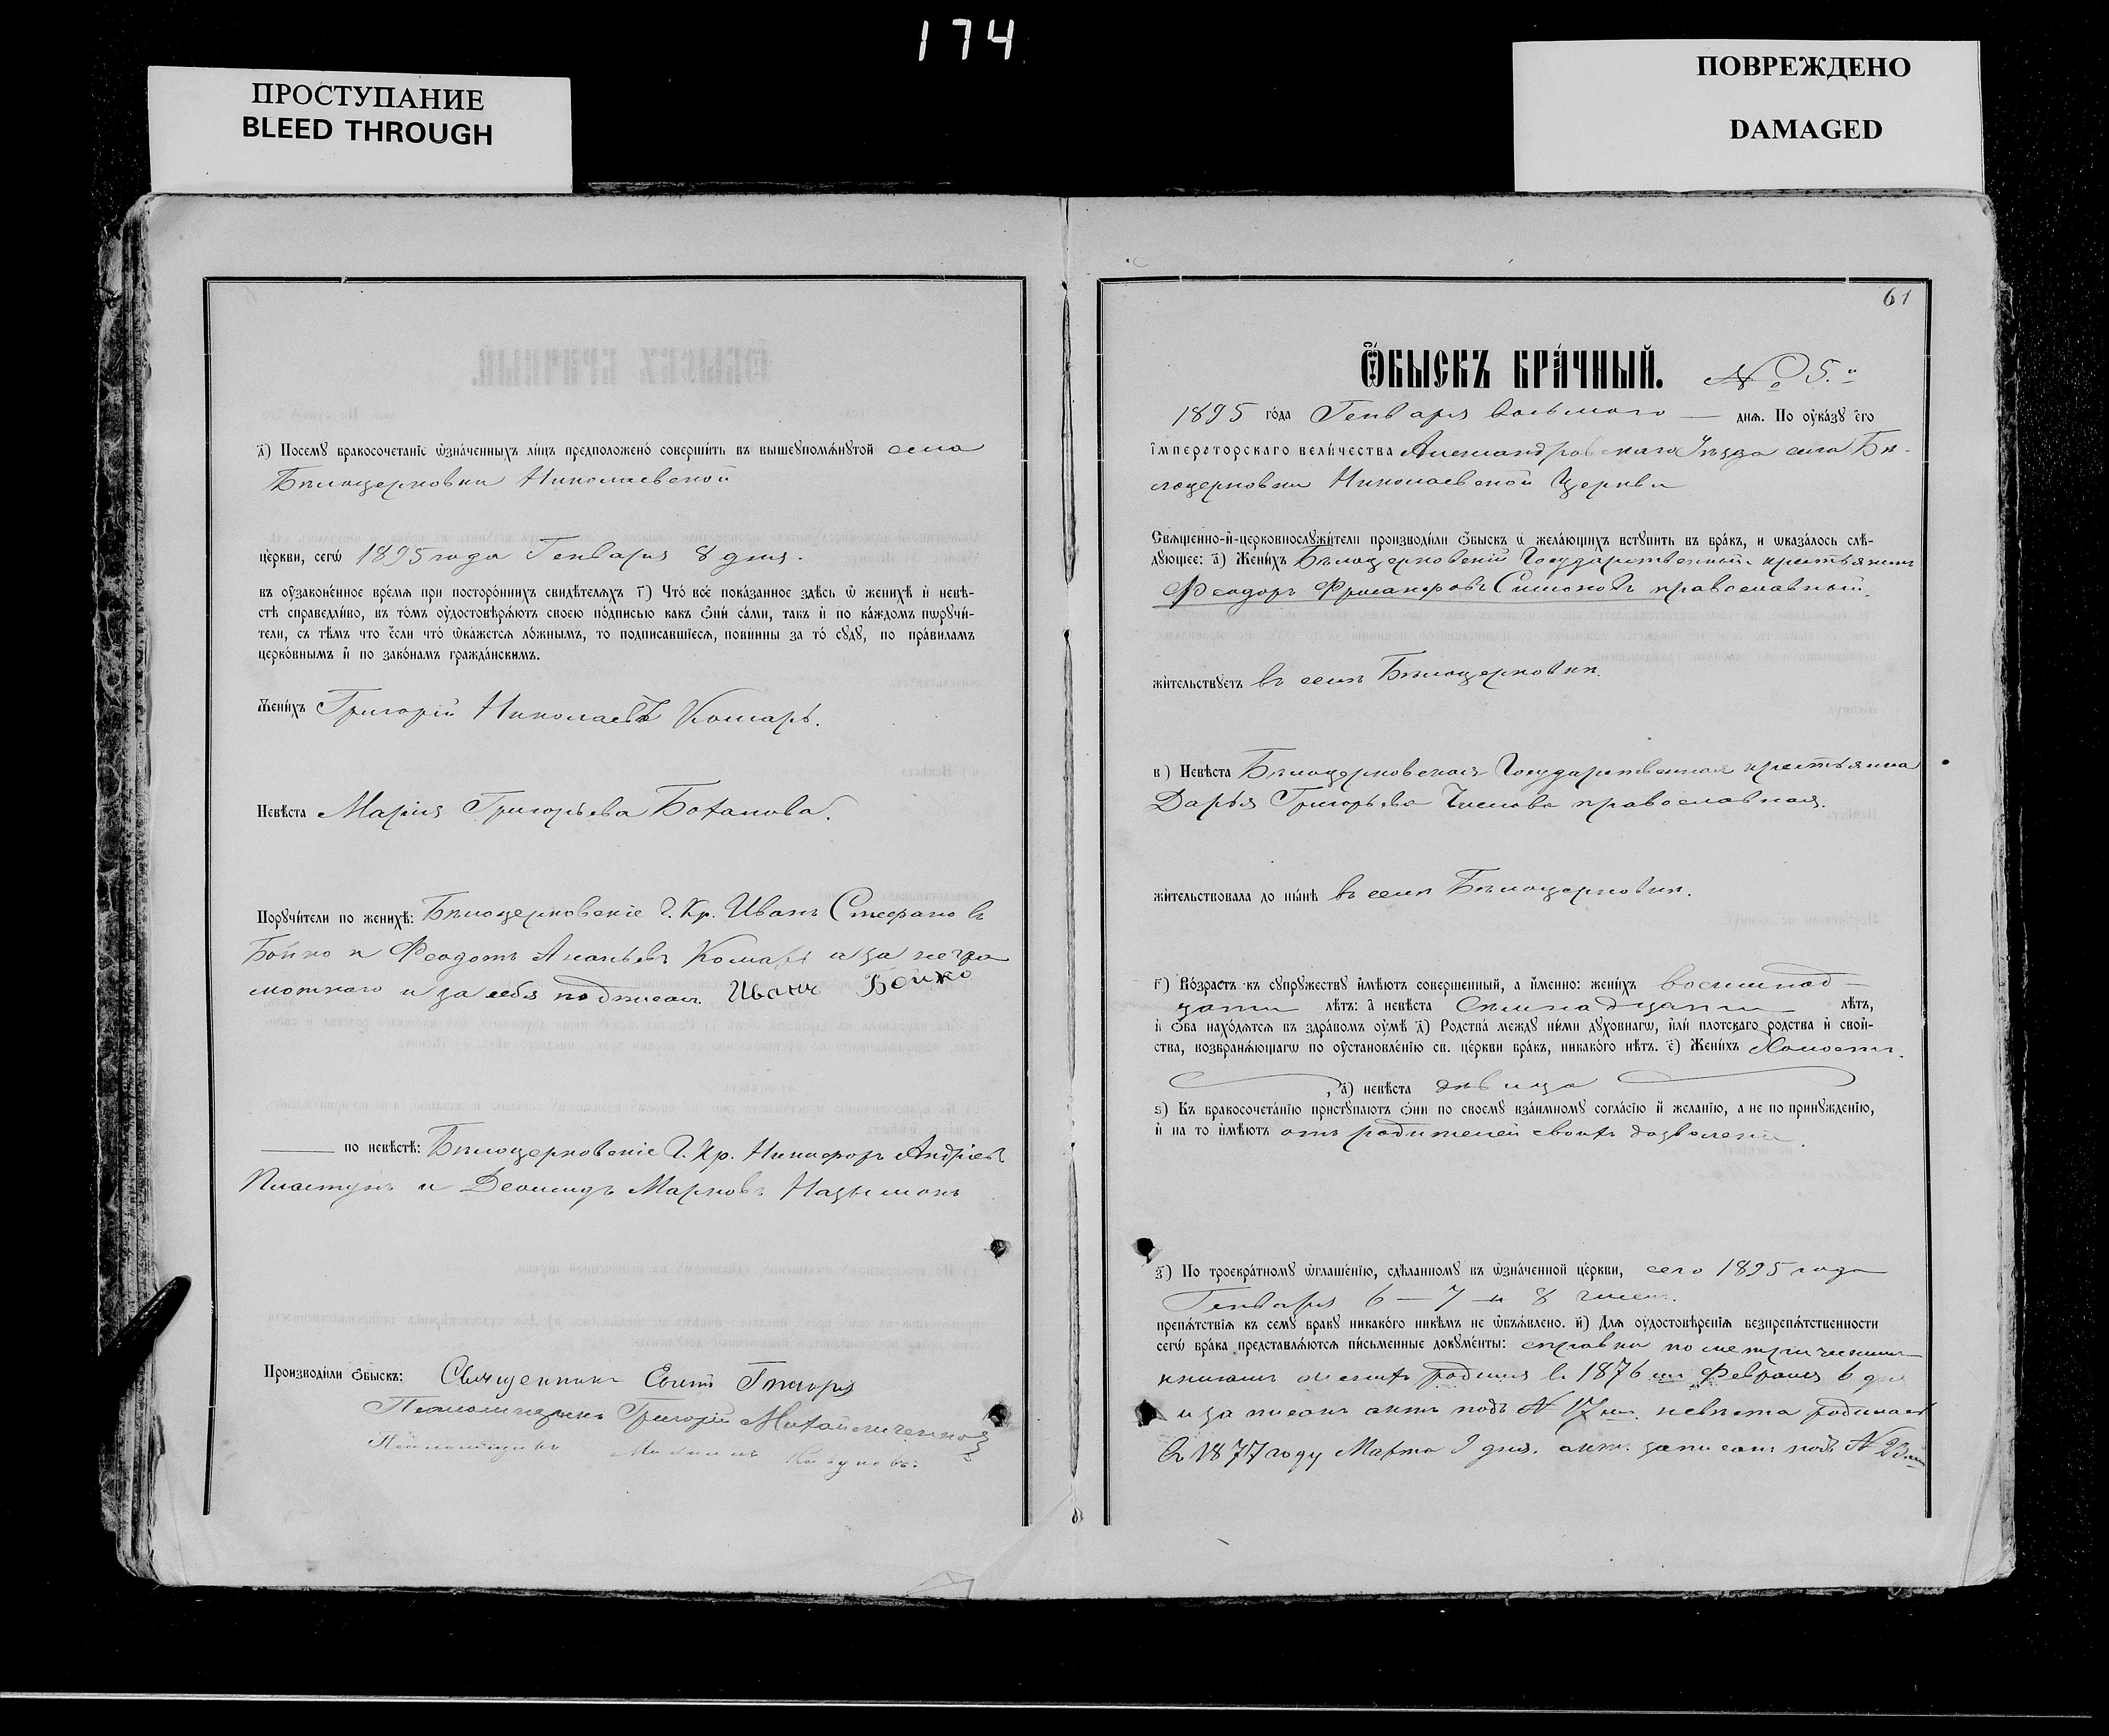 174
ПРОСТУПАНИЕ
BLEED THROUGH
ПОВРЕЖДЕНО
DAMAGED
д҃) Посемꙋ бракосочетанїе ѡ҆зна́ченныхъ ли́цъ предположено̀ соверши́ть въ вышеꙋпомѧ́нꙋтой села
Бѣлоцерковки Николаевской
це́ркви, сегѡ̀ 1895 года Генваря 8 дня.
въ ᲂу҆зако́ненное вре́мѧ при посторо́ннихъ свидѣ́телѧхъ г҃) Что̀ всѐ пока́занное здѣ́сь ѡ҆ женихѣ̀ и҆ невѣ́-
стѣ справедли́во, въ то́мъ ᲂу҆достовѣрѧ́ютъ своею по́дписью какъ ѻ҆нѝ са́ми, такъ и҆ по ка́ждомъ пѡрꙋчи́-
тели, съ тѣ́мъ что є҆́сли что̀ ѡ҆ка́жетсѧ ло́жнымъ, то подписавшїесѧ, пови́нны за то̀ сꙋдꙋ̀, по пра́виламъ
церко́внымъ и҆ по зако́намъ гражда́нскимъ.
Жени́хъ Григорій Николаевъ Комарь.
Невѣ́ста Марія Григорьева Боханова.
Порꙋчи́тели по женихѣ̀: Бѣлоцерковскіе Г. Кр. Иванъ Стефановъ
Бойко и Феодотъ Ананьевъ Комарь а за негра
мотнаго и за себя подписал Иванъ Бойко
по невѣ́стѣ: Бѣлоцерковскіе Г. Кр. Никифоръ Андріевъ
Пластунъ и Леонидъ Марковъ
Производи́ли ѻ҆́быскъ: Священникъ
Псаломщикъ Григорій
Псаломщикъ
61
Ѻ҆́БЫСКЪ БРА́ЧНЫЙ. № 5.й
1895 го́да Генваря восьмого — днѧ. По ᲂу҆ка́зꙋ є҆гѡ̀
і҆мператорскаго вели́чества Александровскаго Уѣзда села Бѣ-
лоцерковки Николаевской Церкви
Свѧще́нно-и҆-церковнослꙋжи́тели производи́ли ѻ҆́быскъ ѡ҆ жела́ющихъ встꙋпи́ть въ бра́къ, и ѡ҆каза́лось слѣ́-
дꙋющее: а҃) Жени́хъ Бѣлоцерковскій Государственный крестьянинъ
Феодоръ Симоновъ православный.
жи́тельствꙋетъ въ селѣ Бѣлоцерковкѣ.
в҃) Невѣ́ста Бѣлоцерковская Государственная крестьянка
Дарья Григорьева православная.
жи́тельствовала до ны́нѣ въ селѣ Бѣлоцерковкѣ.
г҃) Во́зрастъ къ сꙋпрꙋжествꙋ и҆мѣ́ютъ соверше́нный, а и҆́менно: жени́хъ восемнад-
цати лѣ́тъ: а҆ невѣ́ста семнадцати лѣ́тъ,
и҆ ѻ҆́ба нахо́дѧтсѧ въ здра́вомъ ᲂу҆мѣ̀ д҃) Родства̀ междꙋ ни́ми дꙋхо́внагѡ, и҆лѝ пло́тскаго родства̀ и҆ свой-
ства, возбранѧ́ющагѡ по ᲂу҆становле́нїю св. це́ркви бра́къ, никако́го нѣ́тъ. є҃) Жени́хъ Холостъ.
, а҆) невѣ́ста дѣвица
ѕ҃) Къ бракосочета́нїю пристꙋпа́ютъ ѻ҆нѝ по своемꙋ̀ взаи́мномꙋ согла́сїю и҆ жела́нїю, а не по принꙋжде́нїю,
и҆ на то и҆мѣ́ютъ отъ родителей своихъ дозволеніе.
з҃) По троекра́тномꙋ ѡ҆глаше́нїю, сдѣ́ланномꙋ въ ѡ҆зна́ченной це́ркви, сего 1895 года
Генваря 6 — 7 и 8 чиселъ.
препѧ́тствїѧ къ семꙋ̀ бракꙋ никако́го никѣ́мъ не ѡ҆б̾ѧ́влено. и҃) Длѧ ᲂу҆достовѣре́нїѧ безпрепѧ́тственности
сегѡ̀ бра́ка представлѧ́ютсѧ пи́сьменные докꙋме́нты: справки по метрическимъ
книгамъ женихъ родился въ 1876 мъ Февраля 6 дня
и записанъ актъ подъ № 17 мъ. невѣста родилась
въ 1877 году Марта 9 дня. акт. записанъ подъ № 23 мъ